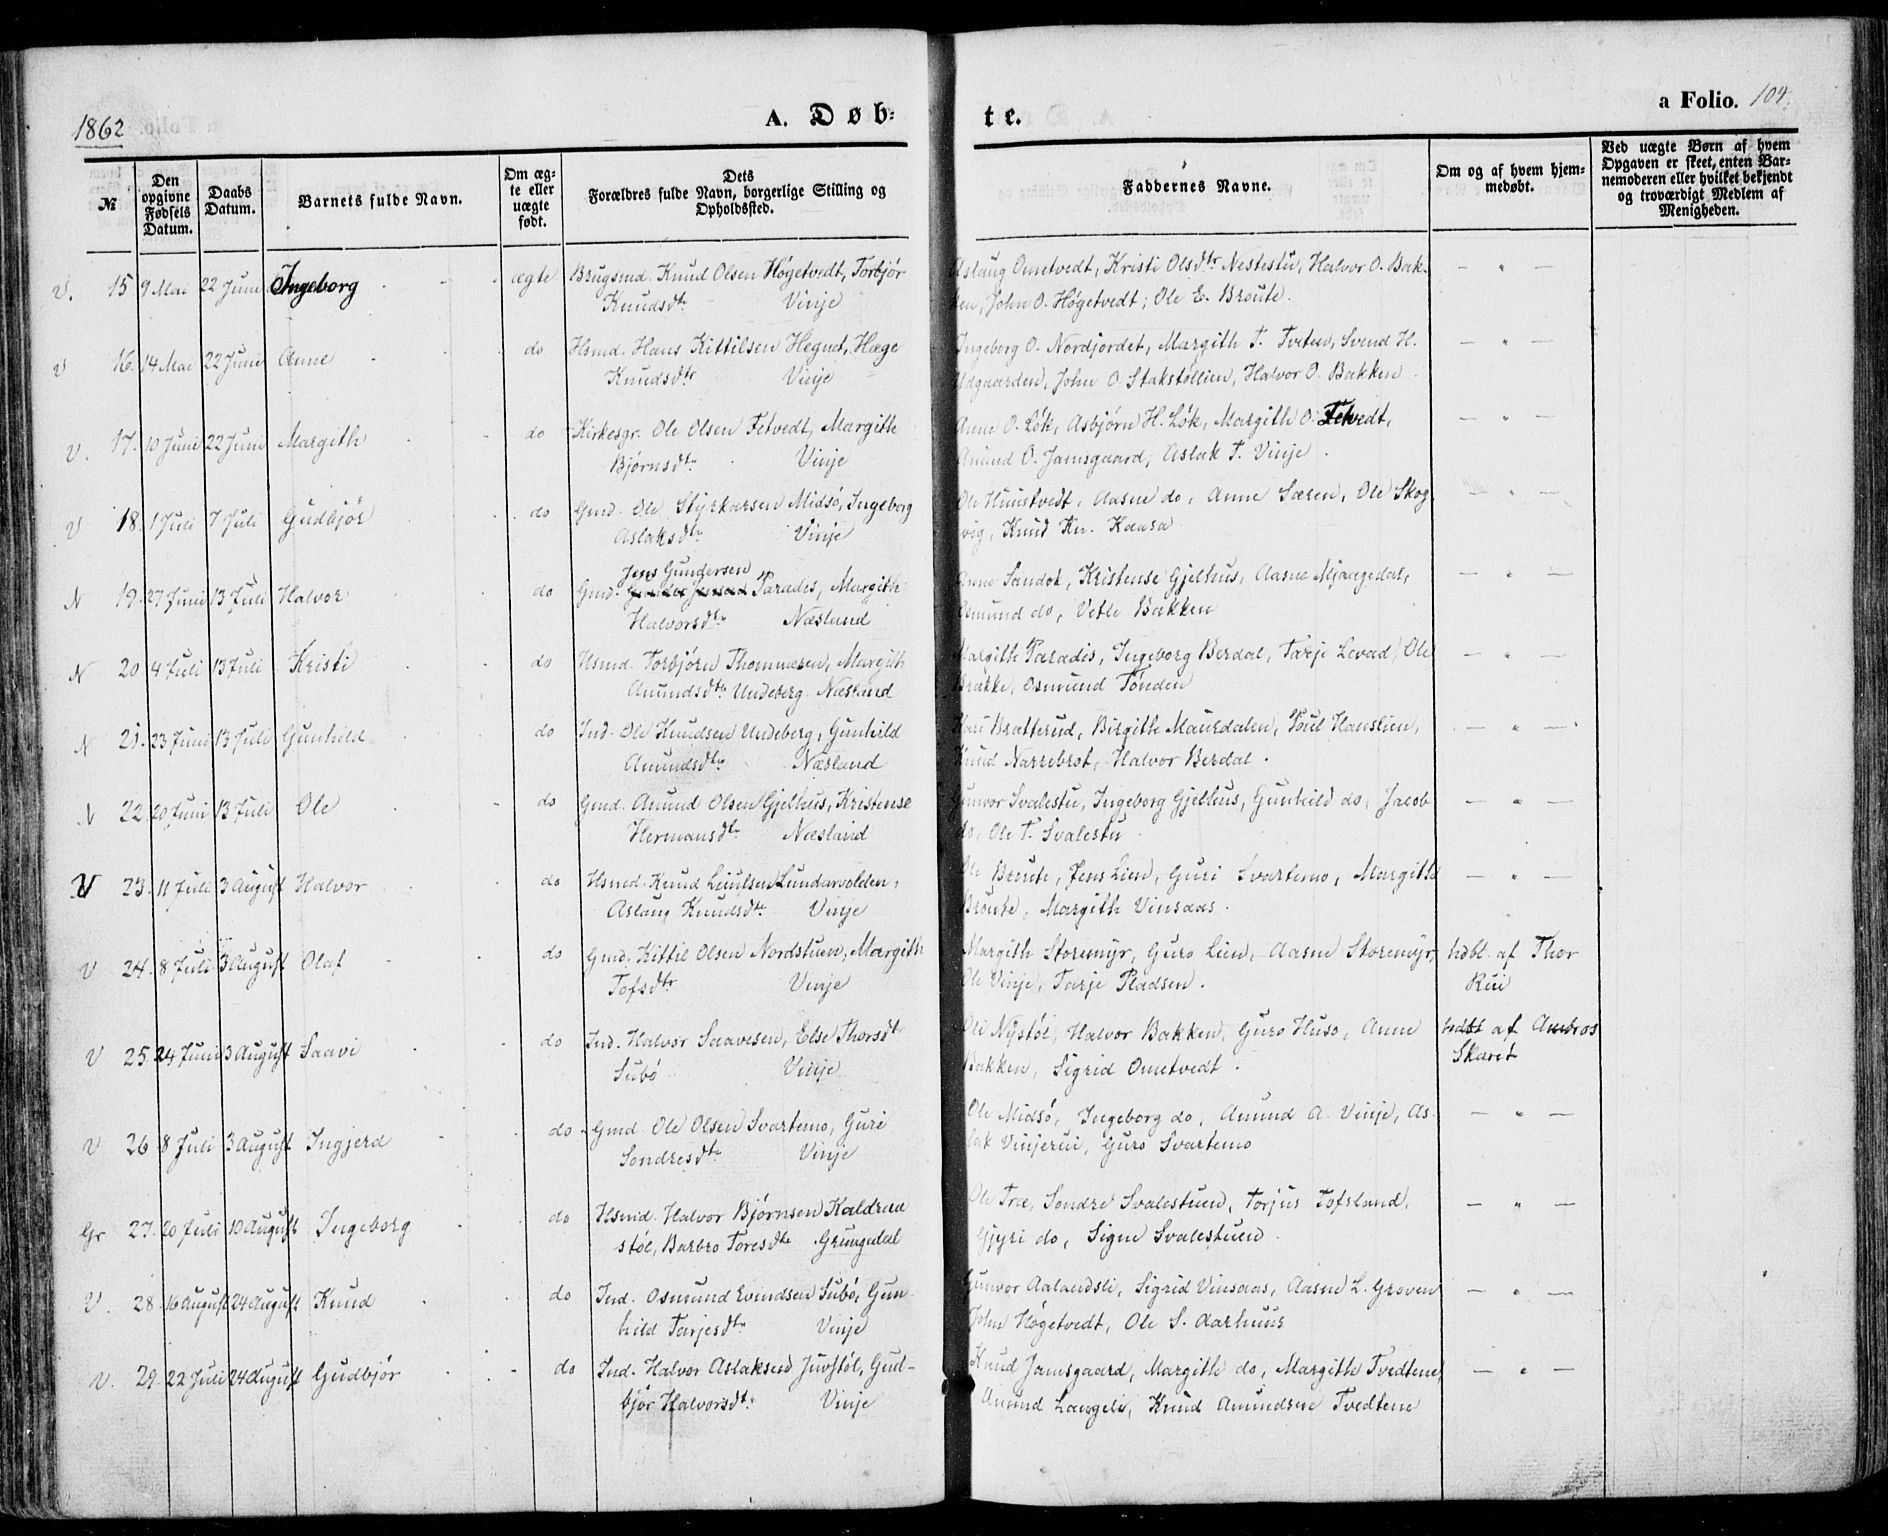 1862
A. Døb-
te.
a Folio. 104.
№
Den opgivne Fødsels Datum.
Daabs Datum.
Barnets fulde Navn.
Om ægte eller uægte født.
Dets Forældres fulde Navn, borgerlige Stilling og Opholdssted.
Faddernes Navne.
Om og af hvem hjemmedøbt.
Ved uægte Børn af hvem Opgaven er skeet, enten Barnemoderen eller hvilket bekjendt og troværdigt Medlem af Menigheden.
V. 15 9 Mai 22 Juni Ingeborg - - - ægte Brugsmd. Knud Olsen Høgetvedt, Torbjør Aslaug Ometvedt, Kristi Olsdtr Nestestu, Halvor O. Bak- — " —
Knudsdtr Vinje ken, John O. Høgetvedt, Ole E. Brøute.
V 16. 14 Mai 22 Juni Anne do Hsmd. Hans Kittilsen Hegnet, Hæge Ingeborg O. Nordjordet, Margith T. Tveten, Svend H. — " —
Knudsdtr Vinje Udgaarden, John O. Stakstøllien, Halvor O. Bakken.
V. 17. 10 Juni 22 Juni Margith do Kirkesgr. Ole Olsen Fetvedt, Margith Anne O. Løk, Asbjørn H. Løk, Margith O. Fetvedt, — " —
Bjørnsdtr Vinje Amund O. Jamsgaard, Aslak T. Vinje.
V 18. 1 Juli 7 Juli Gudbjør do Gmd. Ole Styrkarsen Midsø, Ingeborg Ole Huustvedt, Aasne do, Anne Særen, Ole Skog- — " —
Aslaksdtr Vinje vig, Knud Kn. Kaasa.
Jens Gundersen
N 19. 27 Juni 13 Juli Halvor do Gmd. Paradis, Margith Anne Sandok, Kristense Gjelhus, Aasne Mjaugedal, — " —
Halvorsdtr Næsland Osmund do, Vetle Bakken
N 20 4 Juli 13 Juli Kristi do Hsmd. Torbjørn Thommesen, Margith Margith Paradis, Ingeborg Berdal, Tarje Levad, Ole — " —
Amundsdtr Undeberg Næsland Brække, Osmund Tønden
N 21. 23 Juni 13 Juli Gunhild do Ind. Ole Knudsen Undeberg, Gunhild Kari Bratterud, Birgith Maurdalen, Poul Hanslien, — " —
Amundsdtr Næsland Knud Narrebrot, Halvor Berdal.
N 22. 20 Juni 13 Juli Ole do Gmd. Amund Olsen Gjelhus, Kristense Gunvor Svalestu, Ingeborg Gjelhus, Gunhild do, Jacob — " —
Hermansdtr Næsland do, Ole T. Svalestu
V 23. 11 Juli 3 August Halvor do Hsmd. Knud Leiulsen Lundarvolden, Ole Brøute, Jens Lien, Guri Svartemo, Margith — " —
Aslaug Knudsdtr Vinje Brøute, Margith Vinsaas.
V 24. 8 Juli 3 August Olaf do Gmd. Kittil Olsen Nordstuen, Margith Margith Storemyr, Guro Lien, Aasne Storemyr, hdbt. af Thor
Tofsdtr Vinje Ole Vinje, Tarje Pladsen. Rui
V 25. 24 Juni 3 August Saavi do Ind. Halvor Saavesen, Else Thorsdtr Oli Nystøl, Halvor Bakken, Guro Huso, Anne hdbt af Ambros
Subø Vinje Bakken, Sigrid Ometvedt. Skaret
V 26 8 Juli 3 August Ingjerd do Gmd. Ole Olsen Svartemo, Guri Ole Midsø, Ingeborg do, Amund A. Vinje, As- — " —
Sondresdtr Vinje lak Vinjerui, Guro Svartemo
Gr 27. 20 Juli 10 August Ingeborg do Hsmd. Halvor Bjørnsen Kaldraa Ole Træ, Sondre Svalestuen, Torjus Tofsland, — " —
støl, Barbro Toresdtr Grungedal Gjyri do, Signe Svalestuen.
V. 28. 16 August 24 August Knud do Ind. Osmund Evindsen Subø, Gun- Gunvor Aalandsli, Sigrid Vinsaas, Aasne L. Groven — " —
hild Tarjesdtr Vinje John Høgetvedt, Ole S. Aarhuus
V. 29. 22 Juli 24 August Gudbjør do Ind. Halvor Aslaksen Juvstøl, Gud- Knud Jamsgaard, Margith do, Margith Tvedtene, — " —
bjør Halvorsdtr Vinje Amund Langeli, Knud Amundsen Tvedtene